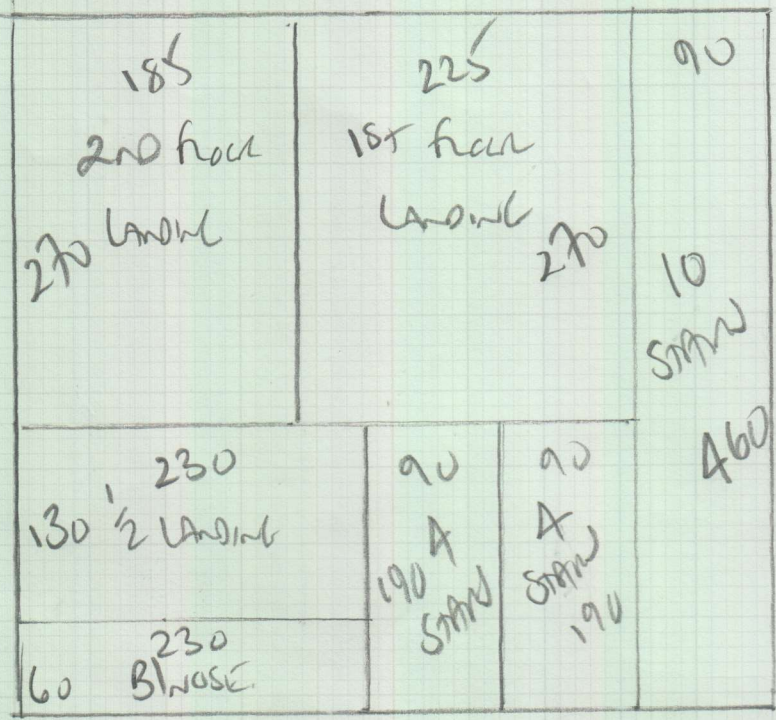 185
2ND floor
LANDING
270
225
1ST floor
LANDING
270
90
10
STAIRS
460
230
130 1/2 LANDING
230
60 B/NOSE
90
4
190
STAIRS
90
4
STAIRS
190